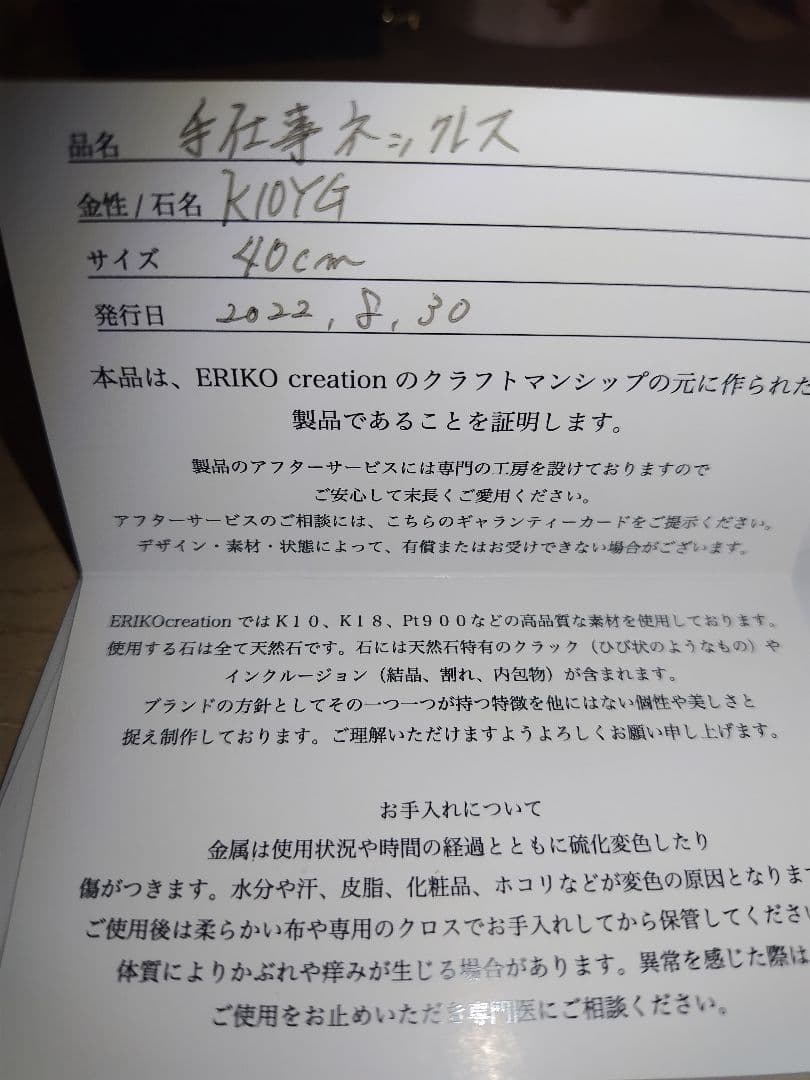 品名 手仕事ネックレス
金性 / 石名 K10YG
サイズ 40cm
発行日 2022.8.30
本品は、ERIKO creation のクラフトマンシップの元に作られた
製品であることを証明します。
製品のアフターサービスには専門の工房を設けておりますので
ご安心して末長くご愛用ください。
アフターサービスのご相談には、こちらのギャランティーカードをご提示ください。
デザイン・素材・状態によって、有償またはお受けできない場合がございます。
ERIKOcreation ではK10、K18、Pt900などの高品質な素材を使用しております。
使用する石は全て天然石です。石には天然石特有のクラック（ひび状のようなもの）や
インクルージョン（結晶、割れ、内包物）が含まれます。
ブランドの方針としてその一つ一つが持つ特徴を他にはない個性や美しさと
捉え制作しております。ご理解いただけますようよろしくお願い申し上げます。
お手入れについて
金属は使用状況や時間の経過とともに硫化変色したり
傷がつきます。水分や汗、皮脂、化粧品、ホコリなどが変色の原因となりま
ご使用後は柔らかい布や専用のクロスでお手入れしてから保管してくださ
体質によりかぶれや痒みが生じる場合があります。異常を感じた際は
ご使用をお止めいただき専門医にご相談ください。